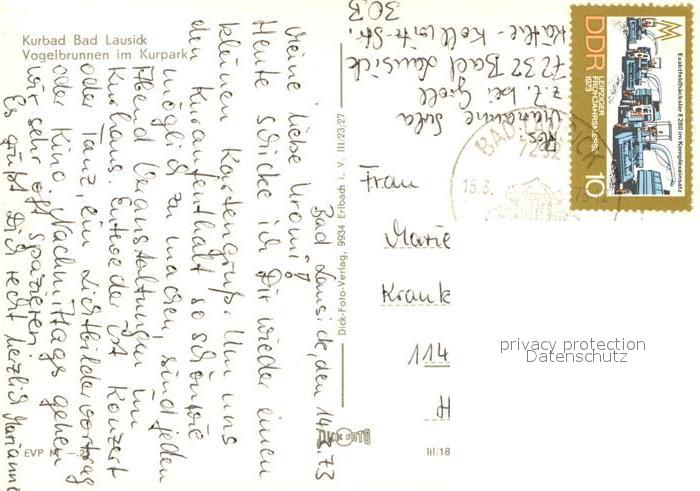 Kurbad Bad Lausick
Vogelbrunnen im Kurpark
Bad Lausick, den 14.3.73
Meine liebe Uromi!
Heute schicke ich Dir wieder einen
kleinen Kartengruß. Um uns
den Kuraufenthalt so schön wie
möglich zu machen, sind jeden
Abend Veranstaltungen im
Kurhaus. Entweder ist Konzert
oder Tanz, ein Lichtbildervortrag
oder Kino. Nachmittags gehen
wir sehr oft spazieren.
Es grüßt Dich recht herzlich Marianne
EVP M
Dick-Foto-Verlag, 9934 Erlbach i. V. III/23/27
DICK FOTO
III/18
Abs.
Marianne
z.Z. bei
7232 Bad Lausick
Käthe-Kollwitz-Str.
30B
BAD LAUSICK
7232
15.3.
DDR
LEIPZIGER
FRÜHJAHRSMESSE
1973
Exaktfeldhäcksler E 280 im Komplexeinsatz
10
Frau
Marie
Krank
114
H
privacy protection
Datenschutz